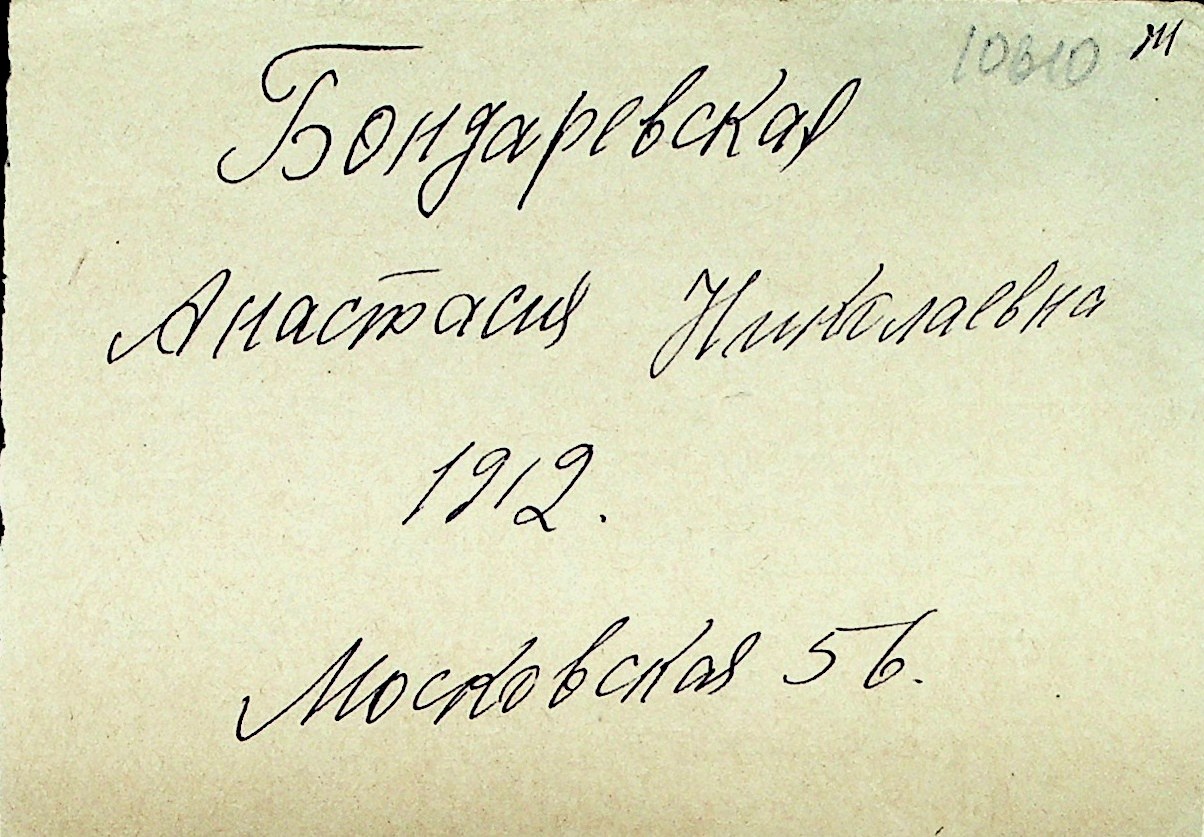 Бондаревская
Анастасия Николаевна
1912.
Московская 56.